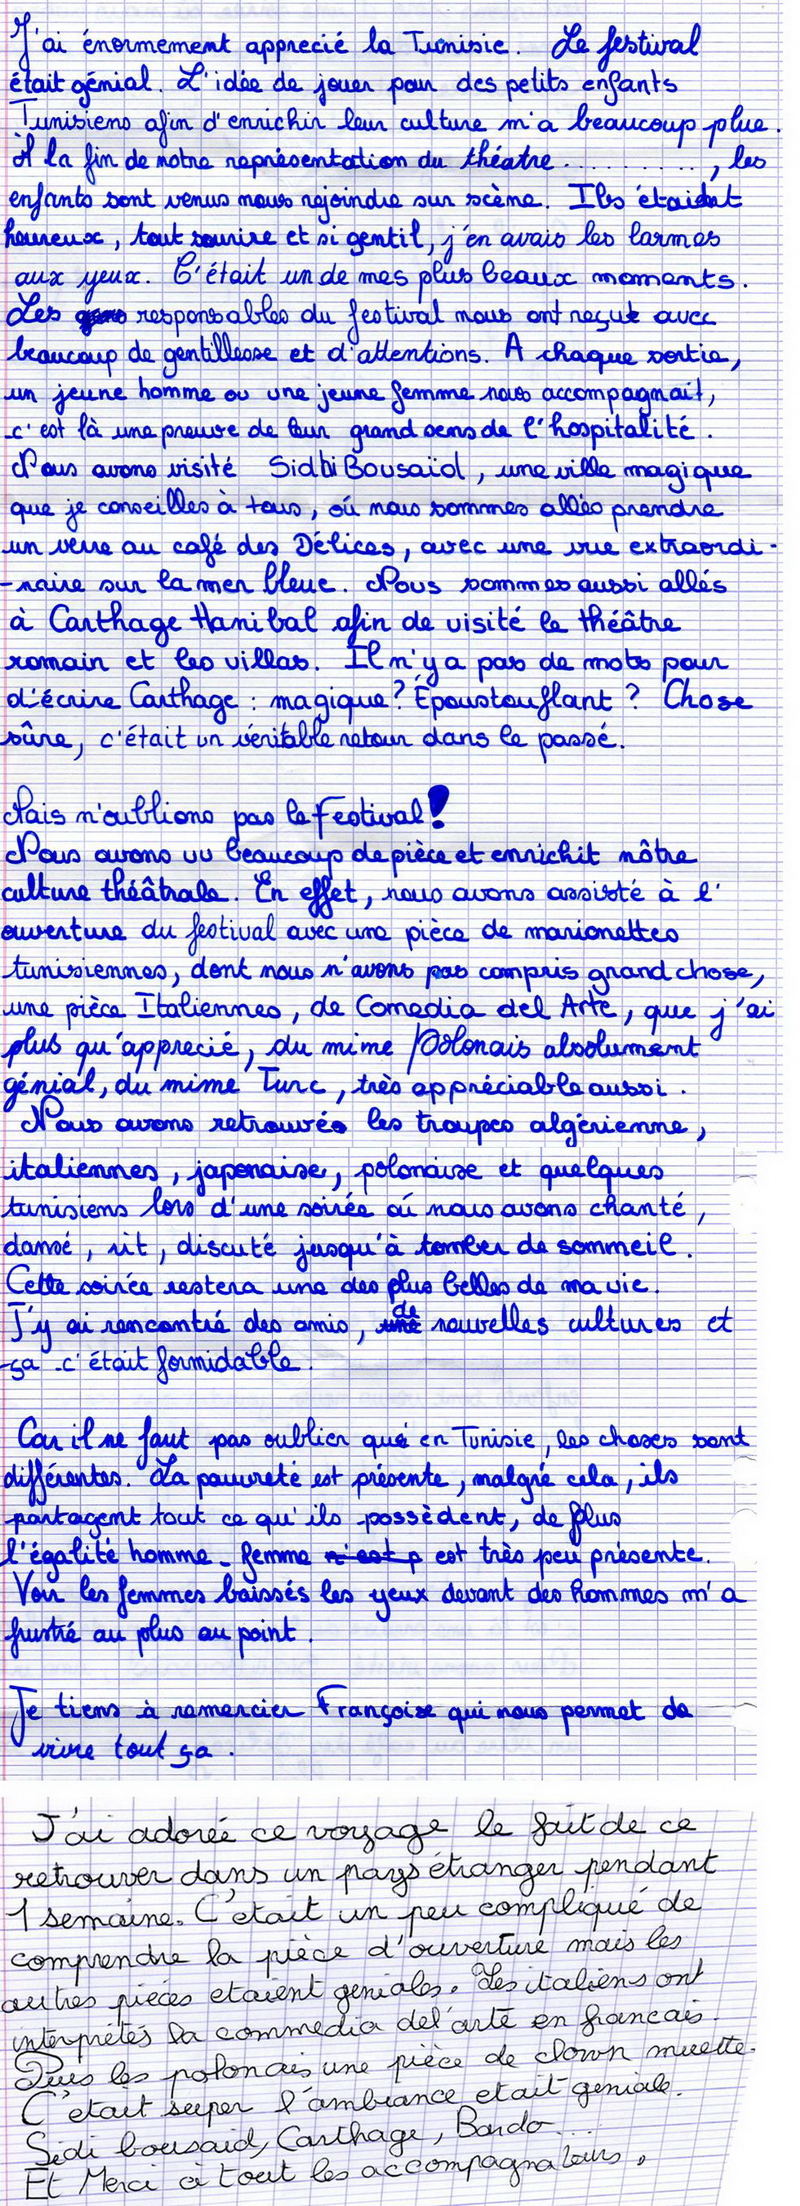 J'ai énormement apprecié la Tunisie. Le festival
était génial. L'idée de jouer pour des petits enfants
Tunisiens afin d'enrichir leur culture m'a beaucoup plue.
A la fin de notre représentation du théatre ..........., les
enfants sont venus nous rejoindre sur scène. Ils étaient
heureux, tout sourire et si gentil, j'en avais les larmes
aux yeux. C'était un de mes plus beaux moments.
Les responsables du festival nous ont reçut avec
beaucoup de gentillesse et d'attentions. A chaque sortie,
un jeune homme ou une jeune femme nous accompagnait,
c'est là une preuve de leur grand sens de l'hospitalité.
Nous avons visité Sidbi Bousaïd, une ville magique
que je conseilles à tous, où nous sommes allés prendre
un verre au café des Délices, avec une vue extraordi-
-naire sur la mer bleue. Nous sommes aussi allés
à Carthage Hanibal afin de visité le théâtre
romain et les villas. Il n'y a pas de mots pour
d'écrire Carthage : magique? Époustouflant? Chose
sûre, c'était un véritable retour dans le passé.
Mais n'oublions pas le Festival!
Nous avons vu beaucoup de pièce et enrichit nôtre
culture théâtrale. En effet, nous avons assisté à l'
ouverture du festival avec une pièce de marionettes
tunisiennes, dont nous n'avons pas compris grand chose,
une pièce Italiennes, de Comedia del Arte, que j'ai
plus qu'apprecié, du mime Polonais absolument
génial, du mime Turc, très appréciable aussi.
Nous avons retrouvés les troupes algérienne,
italiennes, japonaise, polonaise et quelques
tunisiens lors d'une soirée où nous avons chanté,
dansé, rit, discuté jusqu'à tomber de sommeil.
Cette soirée restera une des plus belles de ma vie.
J'y ai rencontré des amis, de nouvelles cultures et
ça c'était formidable.
Car il ne faut pas oublier que en Tunisie, les choses sont
différentes. La pauvreté est présente, malgré cela, ils
partagent tout ce qu'ils possèdent, de plus
l'égalité homme-femme n'est p est très peu présente.
Voir les femmes baissés les yeux devant des hommes m'a
frustré au plus au point.
Je tiens à remercier Françoise qui nous permet de
vivre tout ça.
J'ai adorée ce voyage le fait de ce
retrouver dans un pays étranger pendant
1 semaine. C'était un peu compliqué de
comprendre la pièce d'ouverture mais les
autres pièces etaient geniales. Les italiens ont
interprétés la commedia del'arte en francais.
Puis les polonais une pièce de clown muette.
C'etait super l'ambiance etait geniale.
Sidi bousaid, Carthage, Bardo...
Et Merci à tout les accompagnateurs.